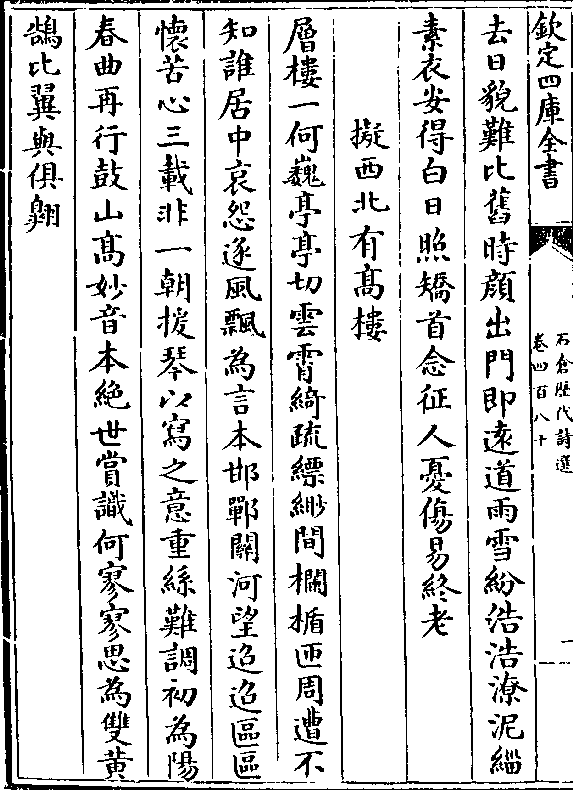 欽定四庫全書
石倉歷代詩選
卷四百八十
一
去日貌難比舊時顔出門即遠道雨雪紛浩浩潦泥緇
素衣安得白日照矯首念征人憂傷易終老
擬西北有髙樓
層樓一何巍亭亭切雲霄綺疏縹緲間欄楯匝周遭不
知誰居中哀怨逐風飄為言本邯鄲闗河望迢迢區區
懷苦心三載非一朝援琴以寫之意重絲難調初為陽
春曲再行鼓山髙妙音本絶世賞識何寥寥思為雙黄
鵠比翼與俱翺